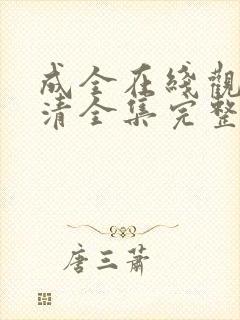 成全在綫觀
清全集完整
唐三蕭